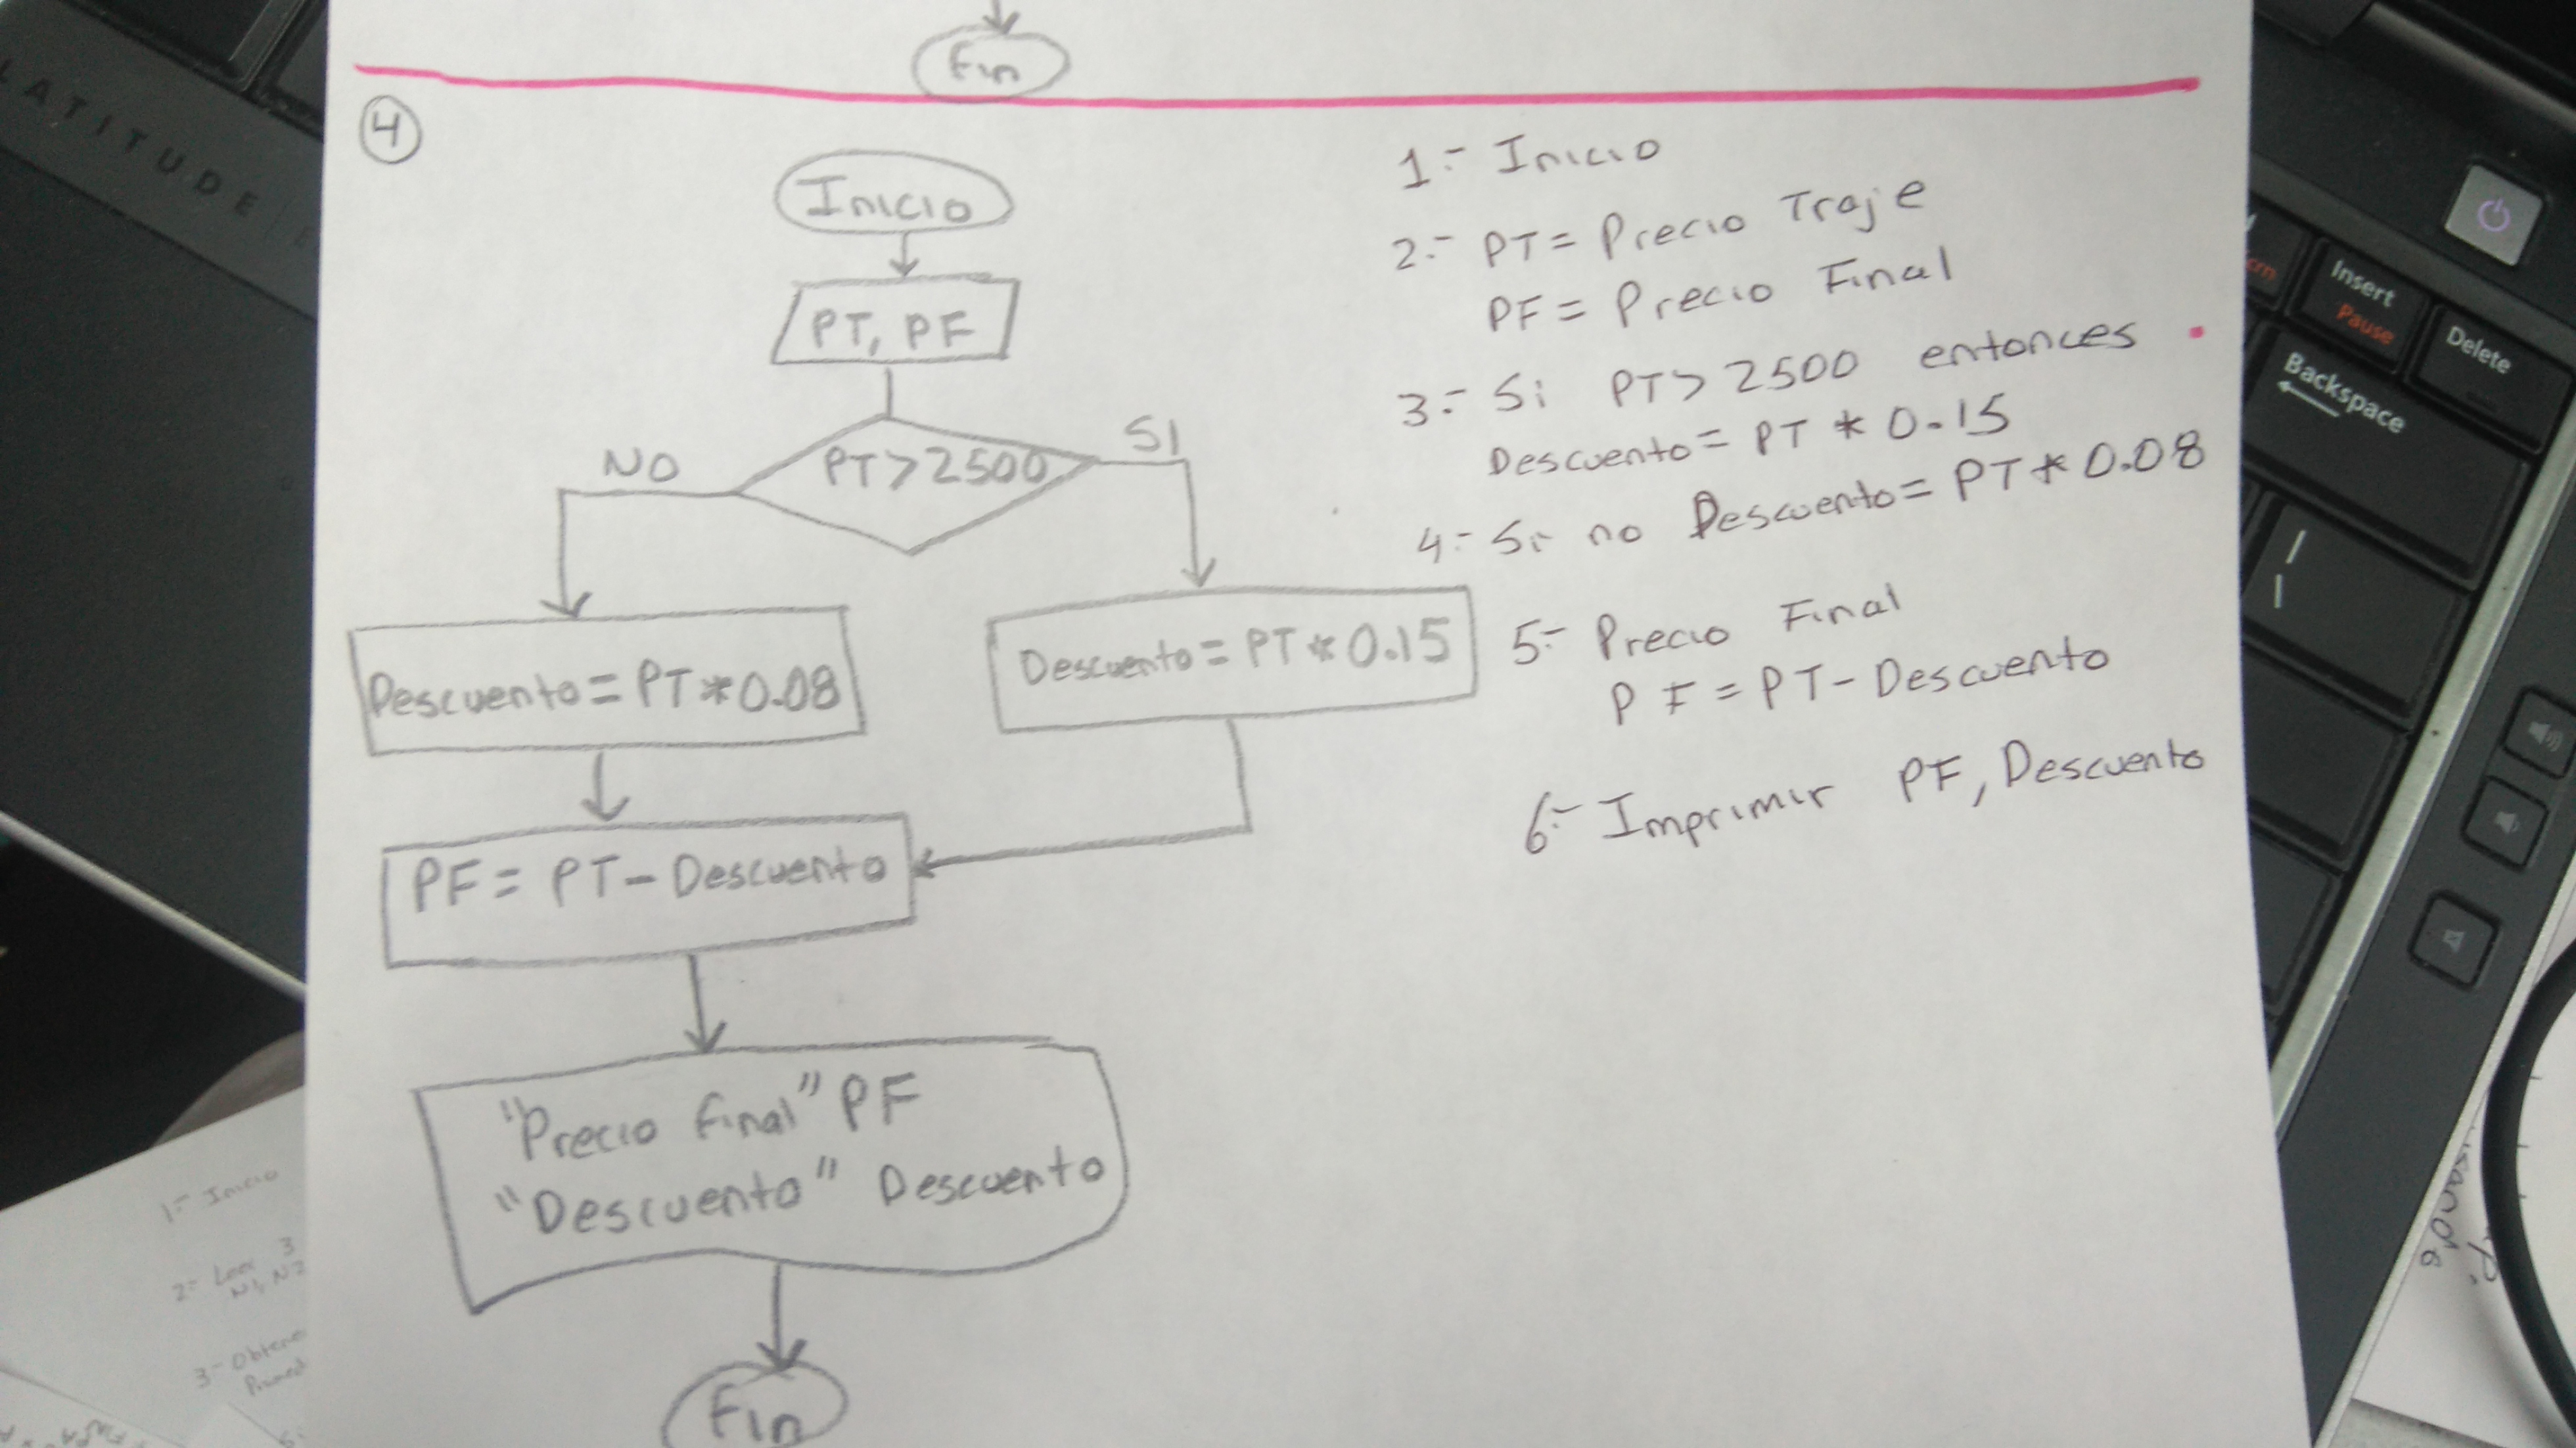 Fin
LATITUDE
4
Inicio
PT, PF
PT>2500
NO
SI
Descuento= PT*0.08
Descuento= PT*0.15
PF= PT-Descuento
"Precio final" PF
"Descuento" Descuento
Fin
1.- Inicio
2.- PT= Precio Traje
PF= Precio Final
3.- Si PT> 2500 entonces
Descuento= PT * 0.15
4.- Si no Descuento= PT*0.08
5.- Precio Final
PF= PT- Descuento
6.- Imprimir PF, Descuento
Insert
Pause
Delete
Backspace
1.- Inicio
2.- Leer 3
N1, N2
3.-